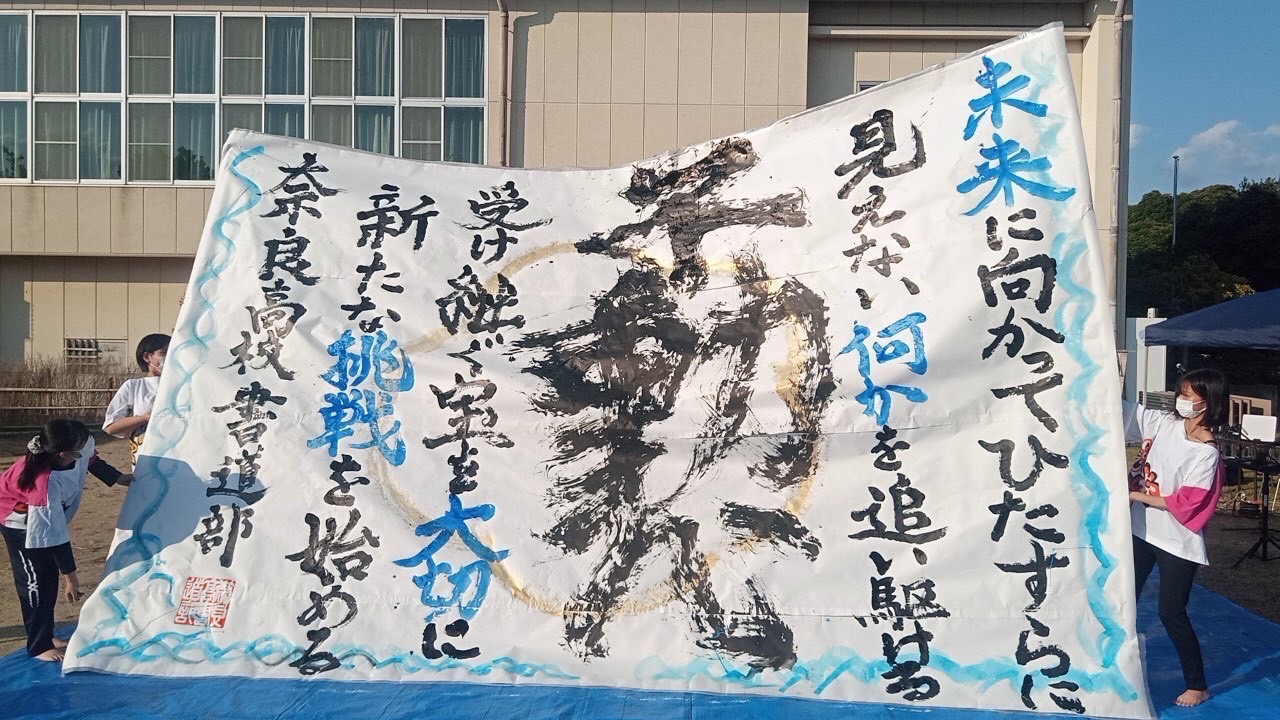 未来に向かってひたすらに
見えない何かを追い駆ける
受け継ぐ宝を大切に
新たな挑戦を始める
奈良高校書道部